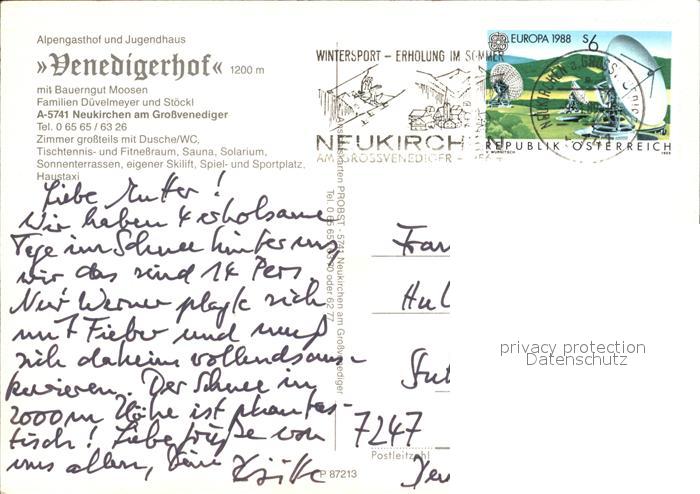 Alpengasthof und Jugendhaus
»Venedigerhof« 1200 m
mit Bauerngut Moosen
Familien Düvelmeyer und Stöckl
A-5741 Neukirchen am Großvenediger
Tel. 0 65 65 / 63 26
Zimmer großteils mit Dusche/WC,
Tischtennis- und Fitneßraum, Sauna, Solarium,
Sonnenterrassen, eigener Skilift, Spiel- und Sportplatz,
Haustaxi
Liebe Mutter!
Wir haben 4 erholsame
Tage im Schnee hinter uns
wir das sind 14 Pers.
Nur Werner plagte sich
mit Fieber und muß
sich daheim vollends aus-
kurieren. Der Schnee in
2000 m Höhe ist phantas-
tisch! Liebe Grüße von
uns allen, Deine
Ansichtskarten PROBST - 5741 Neukirchen am Großvenediger
P 87213
WINTERSPORT - ERHOLUNG IM SOMMER
NEUKIRCH
AM GROSSVENEDIGER
EUROPA 1988 S 6
REPUBLIK ÖSTERREICH
1988
7247
Postleitzahl
privacy protection
Datenschutz